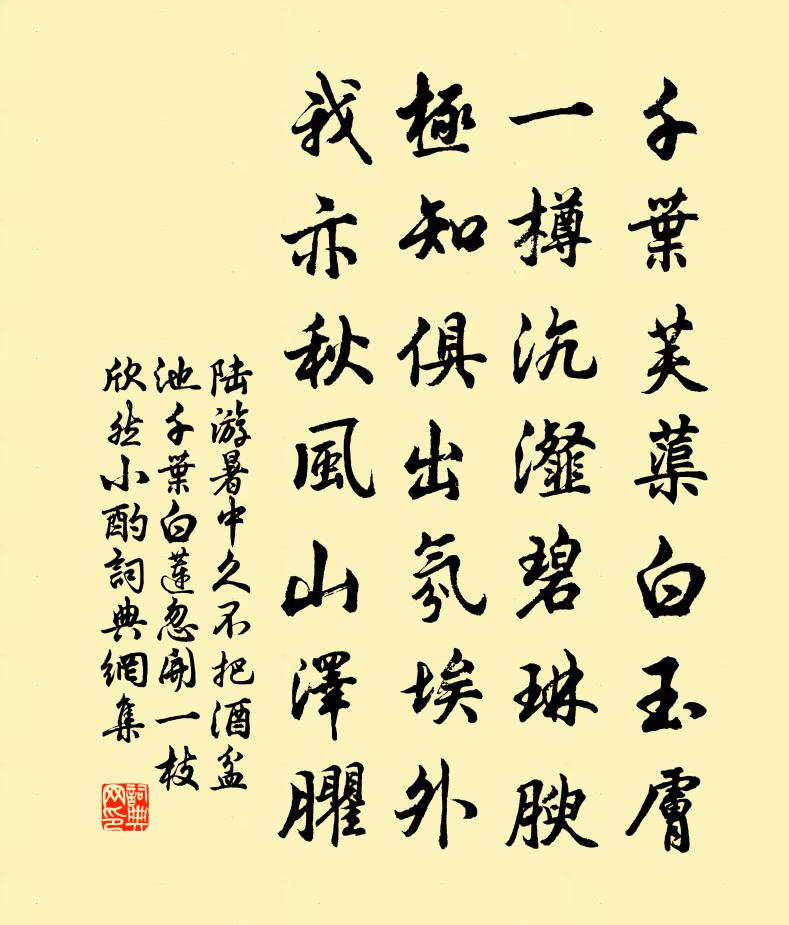 千葉芙蕖白玉膚
一樽沆瀣碧琳腴
極知俱出氛埃外
我亦秋風山澤臞
陆游暑中久不把酒盆
池千葉白蓮忽開一枝
欣然小酌詞典網集
詞典网印